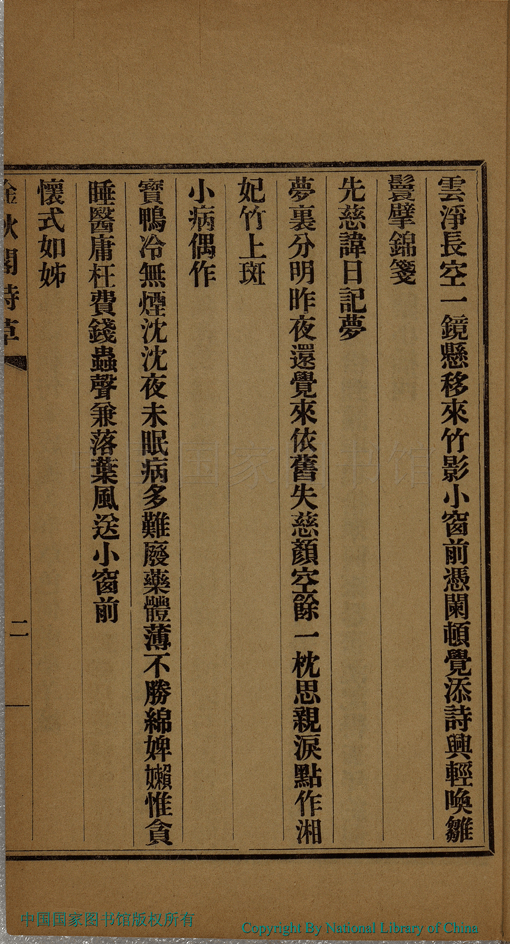 雲淨長空一鏡懸移來竹影小窗前憑闌頓覺添詩興輕喚雛
鬟擘錦箋
先慈諱日記夢
夢裏分明昨夜還覺來依舊失慈顏空餘一枕思親淚點作湘
妃竹上斑
小病偶作
寶鴨冷無煙沈沈夜未眠病多難廢藥體薄不勝綿婢嬾惟貪
睡醫庸枉費錢蟲聲兼落葉風送小窗前
懷式如姊
秋閣詩草
二
中国国家图书馆版权所有
Copyright By National Library of China